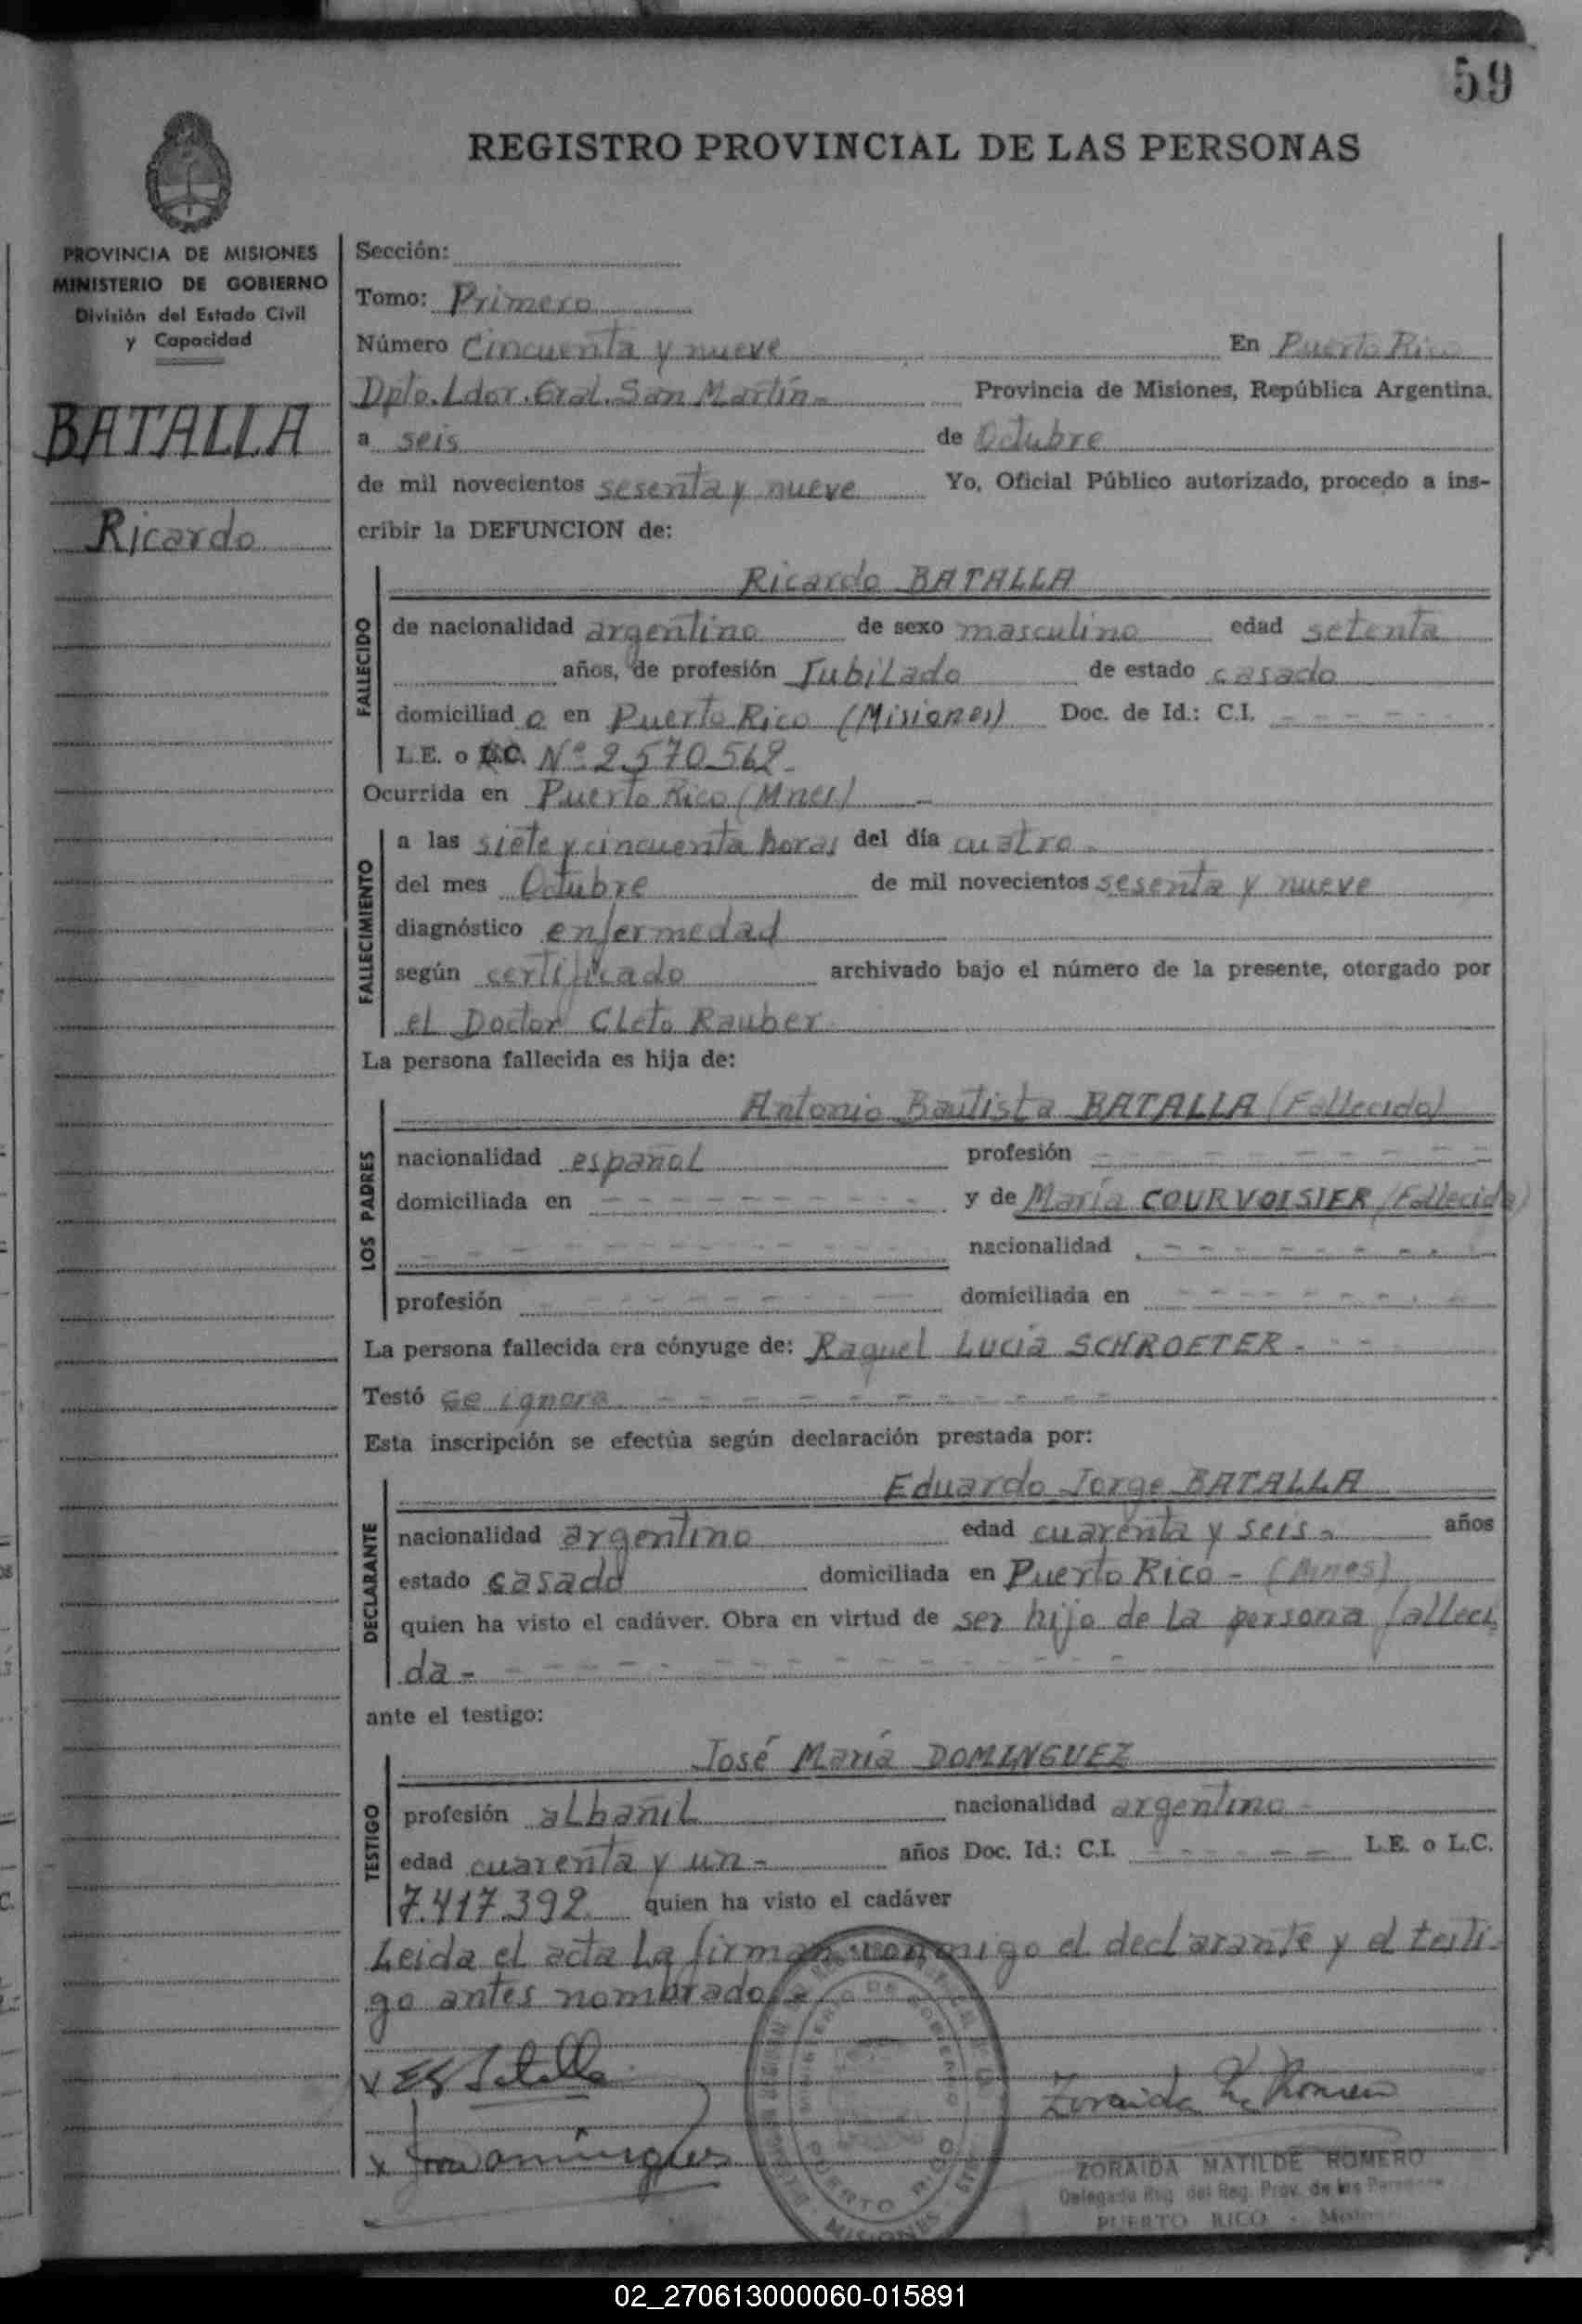 59
REGISTRO PROVINCIAL DE LAS PERSONAS
PROVINCIA DE MISIONES
MINISTERIO DE GOBIERNO
División del Estado Civil
y Capacidad
BATALLA
Ricardo
Sección:
Tomo: Primero
Número Cincuenta y nueve En Puerto Rico
Dpto. Ldor. Gral. San Martín- Provincia de Misiones, República Argentina.
a seis de Octubre
de mil novecientos sesenta y nueve Yo, Oficial Público autorizado, procedo a ins-
cribir la DEFUNCION de:
FALLECIDO
Ricardo BATALLA
de nacionalidad argentino de sexo masculino edad setenta
años, de profesión Jubilado de estado casado
domiciliado en Puerto Rico (Misiones) Doc. de Id.: C.I. - - - - - -
L.E. o L.C. Nº 2.570.562-
Ocurrida en Puerto Rico (Mnes) -
FALLECIMIENTO
a las siete y cincuenta horas del día cuatro-
del mes Octubre de mil novecientos sesenta y nueve
diagnóstico enfermedad
según certificado archivado bajo el número de la presente, otorgado por
el Doctor Cleto Rauber
La persona fallecida es hija de:
LOS PADRES
Antonio Bautista BATALLA (Fallecido)
nacionalidad español profesión - - - - - - - -
domiciliada en - - - - - - - - - y de María COURVOISIER (Fallecida)
- - - - - - - - - nacionalidad - - - - - - - -
profesión - - - - - - - - domiciliada en - - - - - - - -
La persona fallecida era cónyuge de: Raquel Lucía SCHROETER - - -
Testó se ignora - - - - - - - - - - -
Esta inscripción se efectúa según declaración prestada por:
DECLARANTE
Eduardo Jorge BATALLA
nacionalidad argentino edad cuarenta y seis- años
estado casado domiciliada en Puerto Rico - (Mnes)
quien ha visto el cadáver. Obra en virtud de ser hijo de la persona falleci
da - - - - - - - - - - - - - - -
ante el testigo:
TESTIGO
José María DOMINGUEZ
profesión albañil nacionalidad argentino-
edad cuarenta y un- años Doc. Id.: C.I. - - - - - - L.E. o L.C.
7.417.392 quien ha visto el cadáver
Leida el acta la firman conmigo el declarante y el testi-
go antes nombrados
ZORAIDA MATILDE ROMERO
Delegada Reg. del Reg. Prov. de las Personas
PUERTO RICO - Misiones
PUERTO RICO
MISIONES
02_270613000060-015891